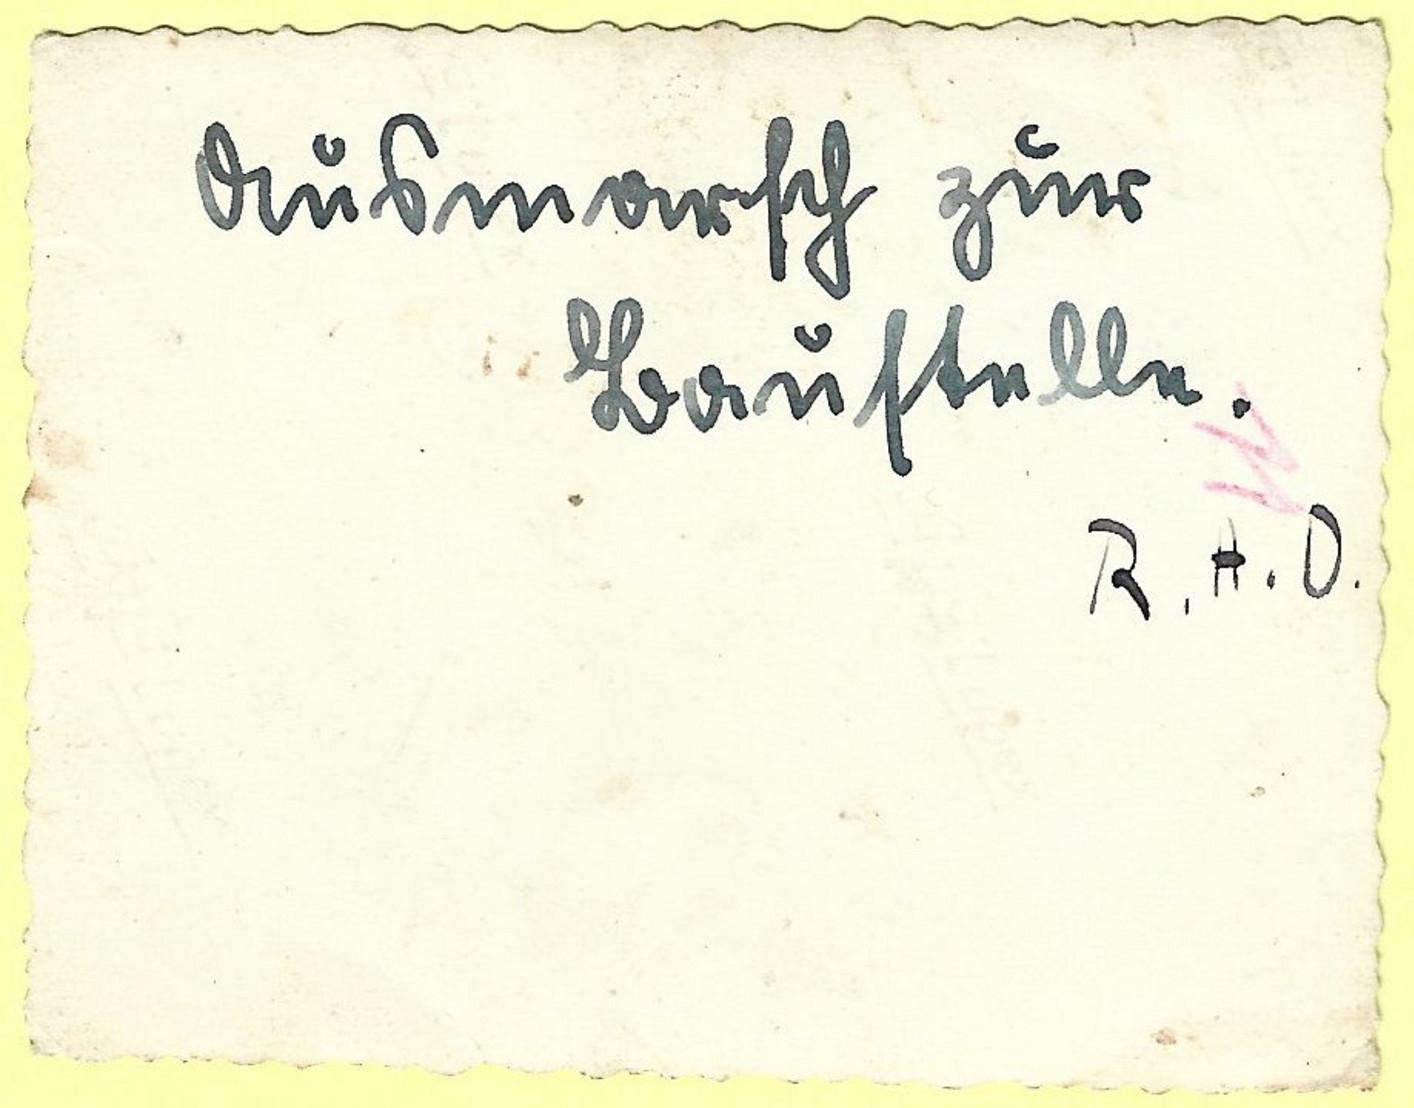 Ausmarsch zur
Baustelle.
R.A.D.